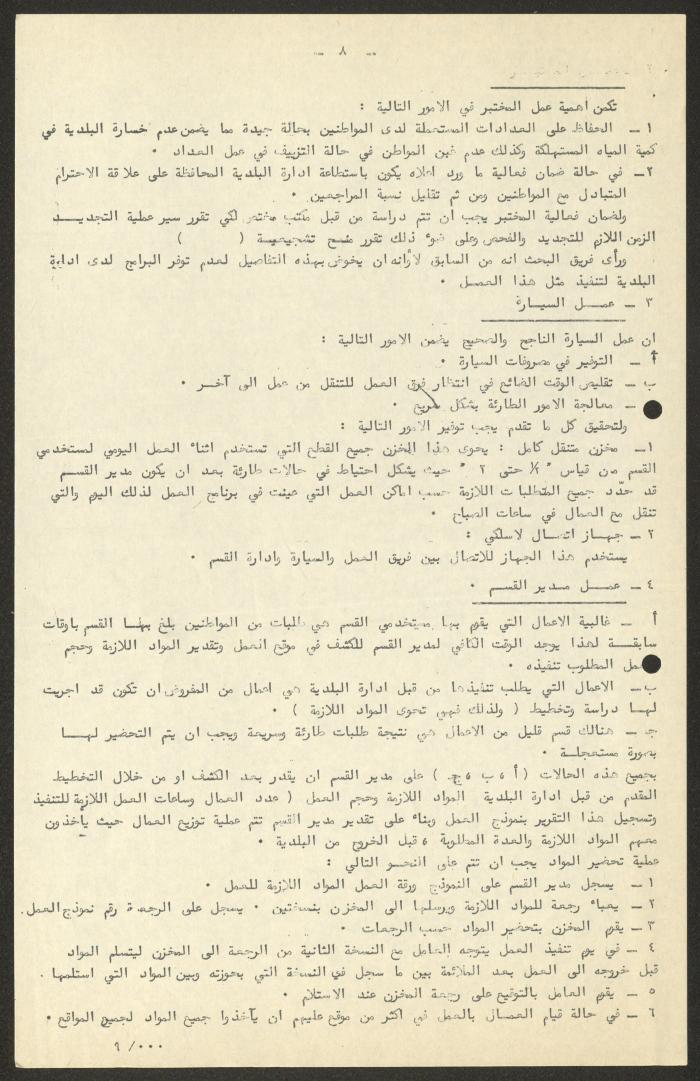 - ٨ -
تكمن اهمية عمل المختبر في الامور التالية :
١ - الحفاظ على العدادات المستعملة لدى المواطنين بحالة جيدة مما يضمن عدم خسارة البلدية في
كمية المياه المستهلكة وكذلك عدم غبن المواطن في حالة التزييف في عمل العداد ٠
٢- في حالة ضمان فعالية ما ورد اعلاه يكون باستطاعة ادارة البلدية المحافظة على علاقة الاحترام
المتبادل مع المواطنين ومن ثم تقليل نسبة المراجعين ٠
ولضمان فعالية المختبر يجب ان تتم دراسة من قبل مكتب مختص لكي تقرر سير عملية التجديــد
الزمن اللازم للتجديد والفحص وعلى ضوء ذلك تقرر منـح تشجيعيـة ( )
ورأى فريق البحث انه من السابق لأوانه ان يخوض بهذه التفاصيل لعدم توفر البرامج لدى ادارة
البلدية لتنفيذ مثل هذا العمـل ٠
٣ - عمــل السيـارة
ان عمل السيارة الناجح والصحيح يضمن الامور التالية :
أ - التوفير في مصروفات السيارة ٠
ب - تقليص الوقت الضائع في انتظار فرق العمل للتنقل من عمل الى آخـر ٠
- معالجة الامور الطارئة بشكل سريع ٠
ولتحقيق كل ما تقدم يجب توفير الامور التالية :
١- مخزن متنقل كامل : يحوى هذا المخزن جميع القطع التي تستخدم اثناء العمل اليومي لمستخدمي
القسم من قياس " ½ حتى ٢ " حيث يشكل احتياط في حالات طارئة بعد ان يكون مدير القسـم
قد حدّد جميع المتطلبات اللازمة حسب اماكن العمل التي عينت في برنامج العمل لذلك اليوم والتي
تنقل مع العمال في ساعات الصباح ٠
٢ - جهـاز اتصـال لاسلكي :
يستخدم هذا الجهاز للاتصال بين فريق العمل والسيارة وادارة القسم ٠
٤ - عمــل مـدير القسـم ٠
أ - غالبية الاعمال التي يقوم بها مستخدمي القسم هي طلبات من المواطنين بلغ بهـا القسم باوقات
سابقــة لهذا يوجد الوقت الكافي لمدير القسم للكشف في موقع العمل وتقدير المواد اللازمة وحجم
العمل المطلوب تنفيذه ٠
ب- الاعمال التي يطلب تنفيذها من قبل ادارة البلدية هي اعمال من المفروض ان تكون قد اجريت
لهـا دراسة وتخطيط ( ولذلك فهي تحوى المواد اللازمة ) ٠
جـ - هنالك قسم قليل من الاعمال هي نتيجة طلبات طارئة وسريعة ويجب ان يتم التحضير لهـا
بصورة مستعجلـة ٠
بجميع هذه الحالات ( أ ، ب ، ج ) على مدير القسم ان يقدر بعد الكشف او من خلال التخطيط
المقدم من قبل ادارة البلدية المواد اللازمة وحجم العمل ( عدد العمال وساعات العمل اللازمة للتنفيذ
وتسجيل هذا التقرير بنموذج العمل وبناء على تقدير مدير القسم تتم عملية توزيع العمال حيث يأخذون
معهم المواد اللازمة والعدة المطلوبة ، قبل الخروج من البلدية ٠
عملية تحضير المواد يجب ان تتم على النحـو التالي :
١ - يسجل مدير القسم على النموذج ورقة العمل المواد اللازمة للعمل ٠
٢ - يعباء رجعة للمواد اللازمة ويرسلها الى المخزن بنسختين ٠ يسجل على الرجعة رقم نموذج العمل٠
٣ - يقوم المخزن بتحضير المواد حسب الرجعات ٠
٤ - في يوم تنفيذ العمل يتوجه العامل مع النسخة الثانية من الرجعة الى المخزن ليتسلم المواد
قبل خروجه الى العمل بعد الملائمة بين ما سجل في النسخة التي بحوزته وبين المواد التي استلمها ٠
٥ - يقوم العامل بالتوقيع على رجعة المخزن عند الاستلام ٠
٦ - في حالة قيام العمـال بالعمل في اكثر من موقع عليهم ان يأخذوا جميع المواد لجميع المواقع ٠
٩ /٠٠٠